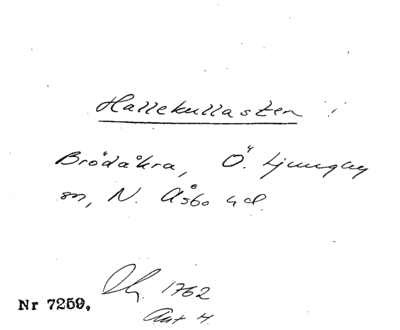 Hallekullasten
Brödåkra, Ö. Ljungby
sn, N. Åsbo hd.
1762
Akt 4.
Nr 7259.